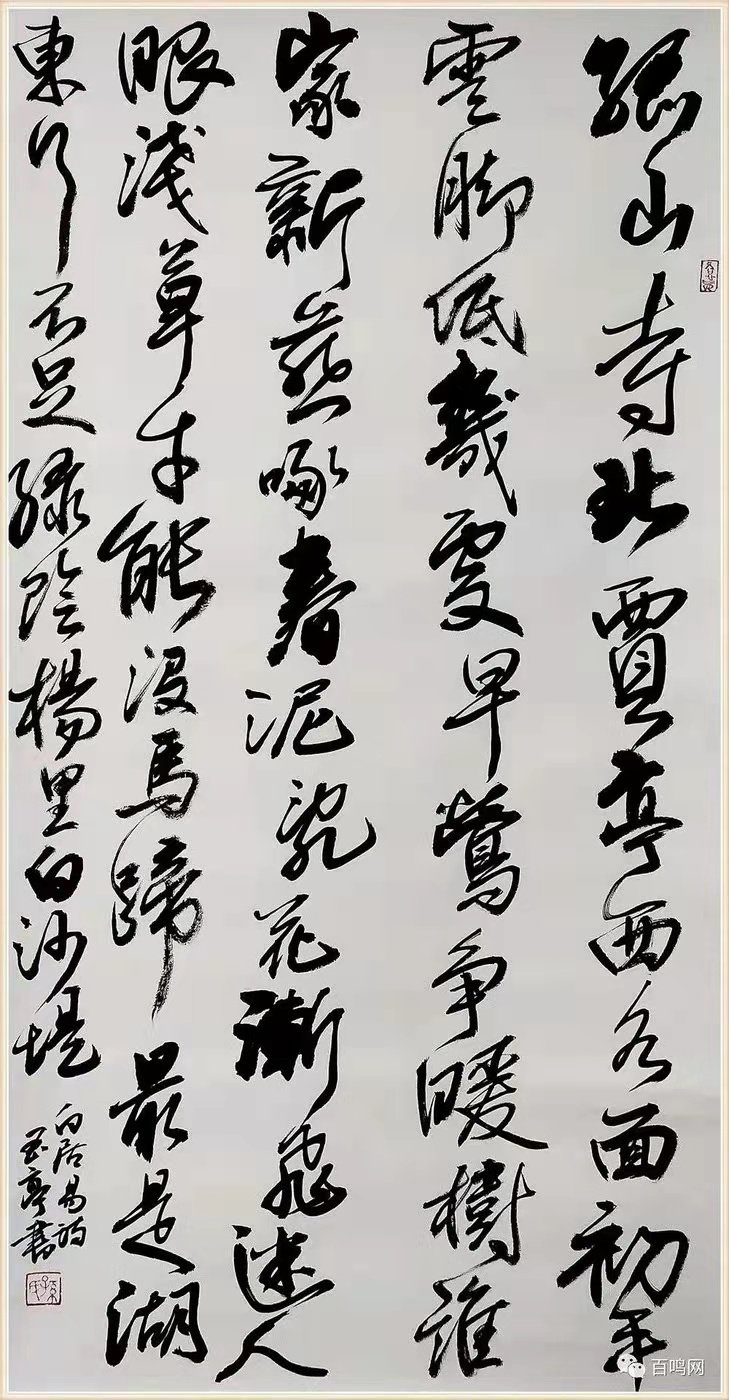 孤山寺北賈亭西水面初平
雲脚低幾處早鶯争暖樹誰
家新燕啄春泥亂花漸飛迷人
眼淺草才能没馬蹄最是湖
東行不足緑陰楊里白沙堤
白居易詩
玉亭書
百鸣网